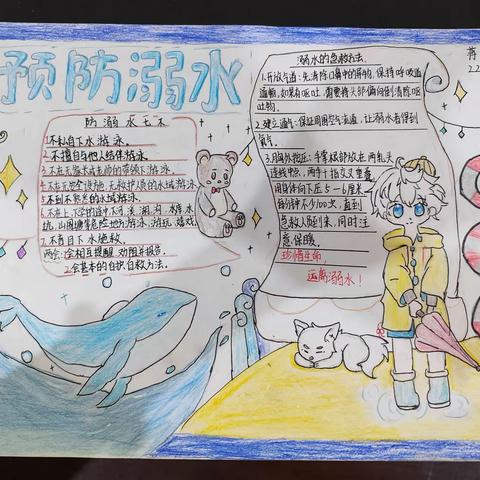 预防溺水
防溺水七不
1.不私自下水游泳。
2.不擅自与他人结伴游泳。
3.不在无家长或老师的带领下游泳。
4.不在无安全设施、无救护人员的水域游泳
5.不到不熟悉的水域游泳。
7.不盲目下水施救。
两会:会相互提醒、劝阻并报告。
2.会基本的自护自救方法。
溺水的急救方法
1.开放气道:先清除口鼻中的异物,保持呼吸道
通畅,如果有呕吐,需要将头部偏向侧清除呕
吐物。
2.建立通气:保证周围空气流通,让溺水者得到
氧气。
3.胸外按压:手掌根部放在两乳头
连线中点,两手十指交叉重叠
用身体向下压5-6厘米
每分钟不少100次,直到
急救人员到来,同时注
意保暖。
珍惜生命,
远离溺水!
蒋
22